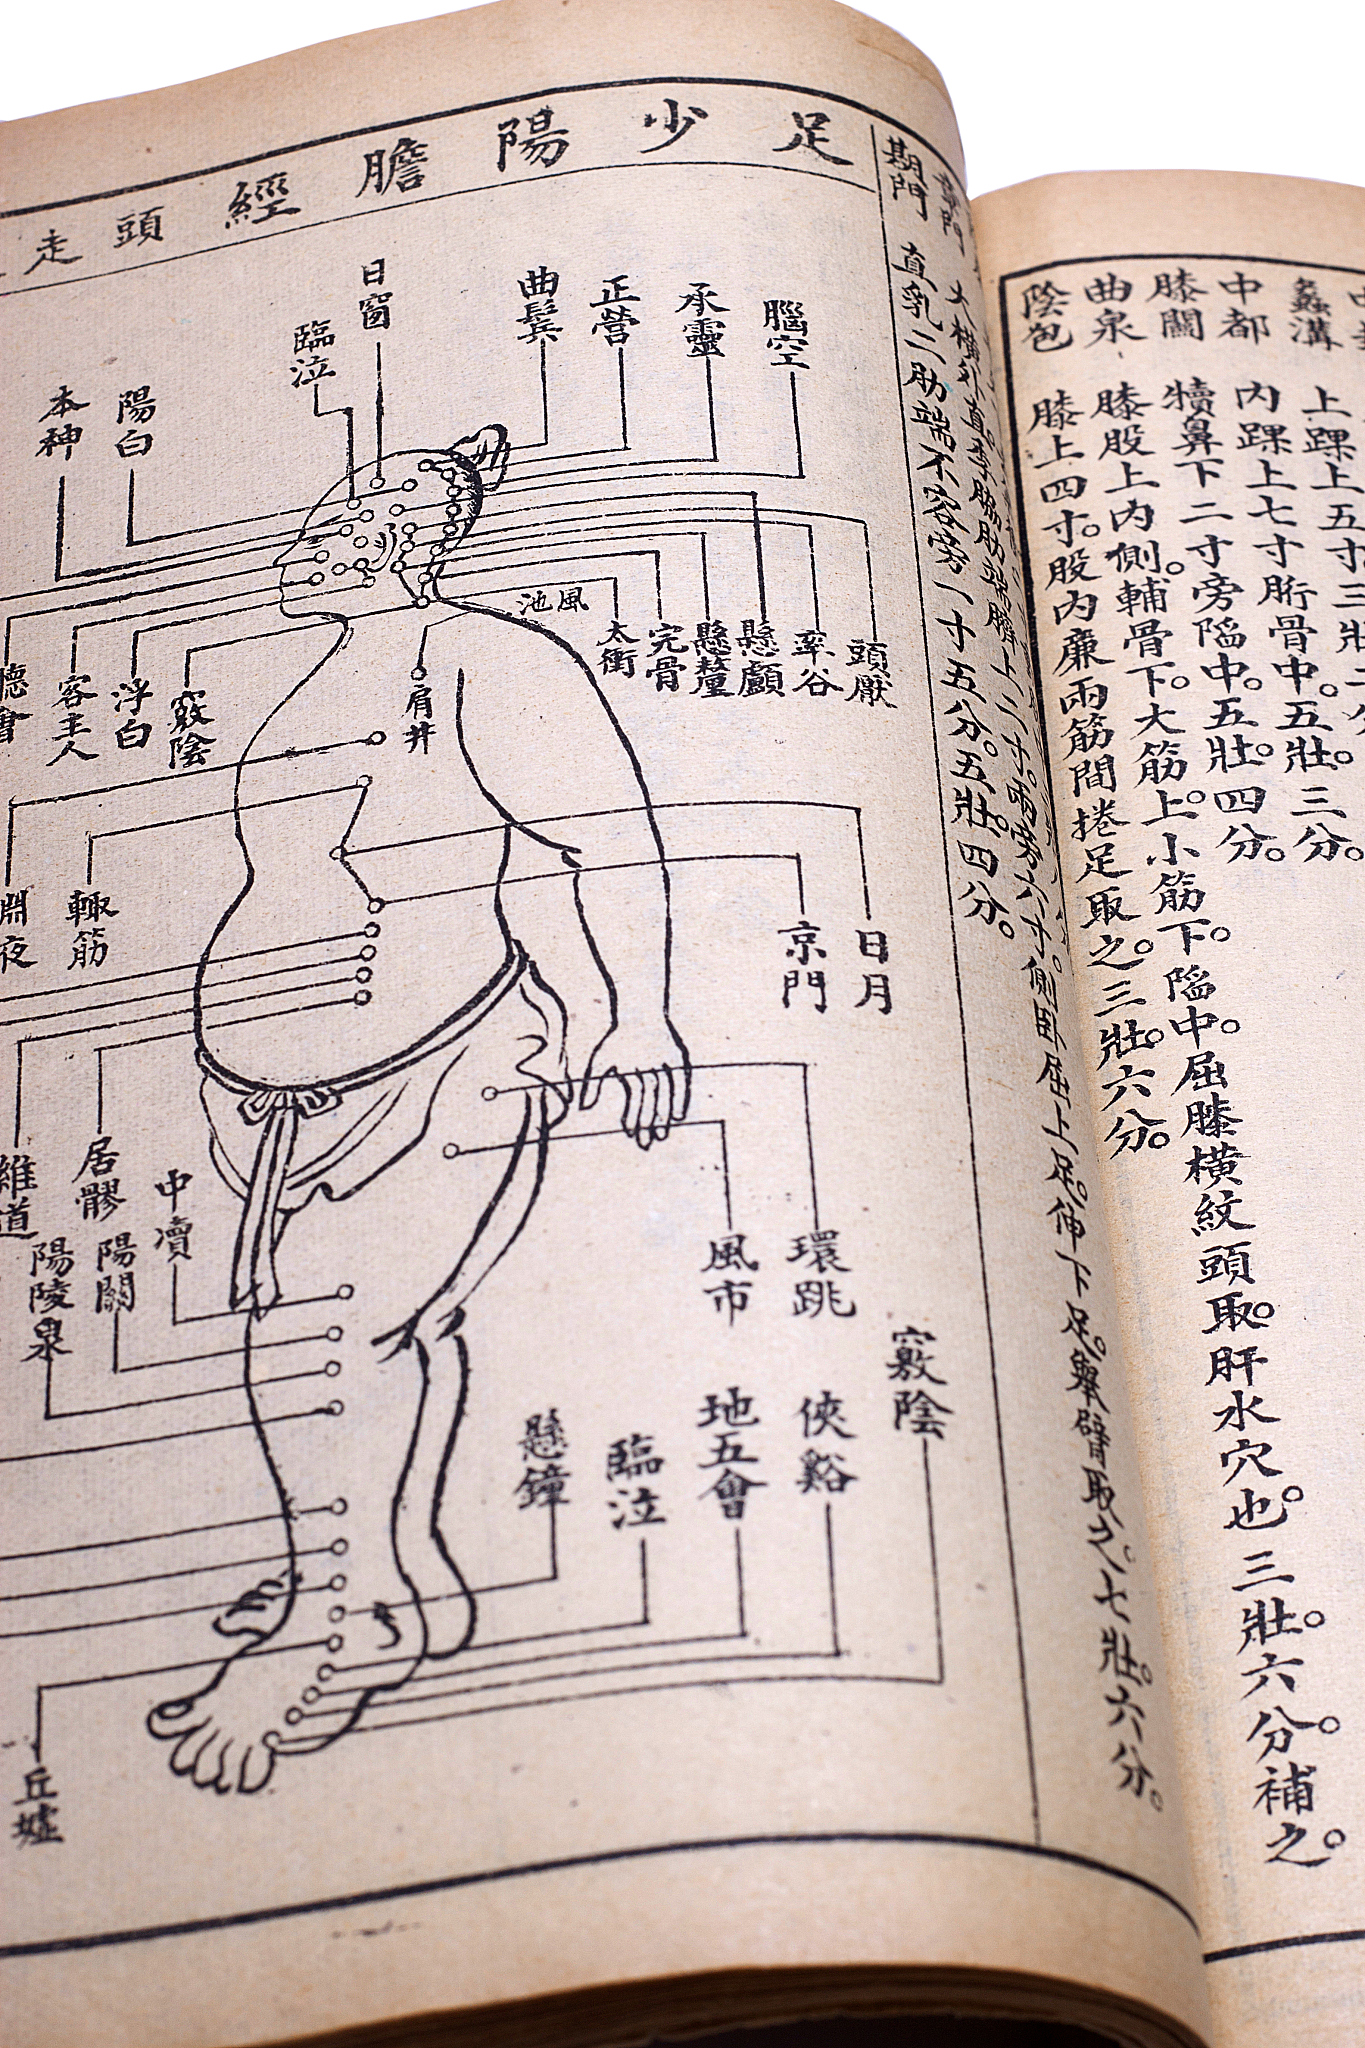 中都
膝關
曲泉
陰包
上踝上五寸三壯二分
內踝上七寸䯒骨中。五壯。三分。
犢鼻下二寸旁陷中。五壯。四分。
膝股上內側。輔骨下。大筋上。小筋下。陷中。屈膝橫紋頭取。肝水穴也。三壯。六分。補之。
膝上四寸。股內廉兩筋間捲足取之。三壯。六分。
大橫外直季脇肋端臍上二寸。兩旁六寸。側臥屈上足。伸下足。舉臂取之。七壯。六分。
期門
直乳二肋端不容旁一寸五分。五壯。四分。
足少陽膽經頭走
腦空
承靈
正營
曲鬓
目窗
臨泣
陽白
本神
風池
頭厭
率谷
懸顱
懸釐
完骨
太衝
肩井
竅陰
浮白
客主人
聽會
日月
京門
輒筋
淵夜
環跳
風市
居髎
維道
中瀆
陽關
陽陵泉
竅陰
俠谿
地五會
臨泣
懸鐘
丘墟